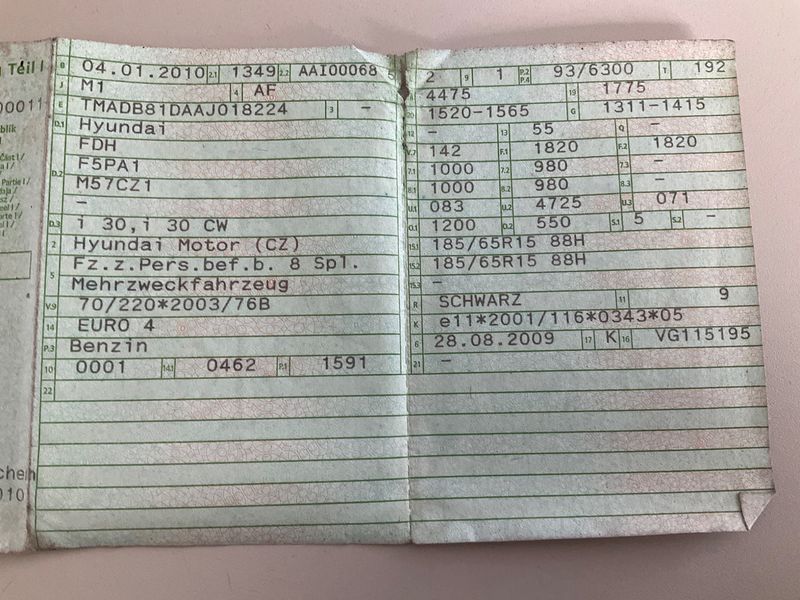 Teil I
B 04.01.2010 2.1 1349 2.2 AAI00068 5
J M1 4 AF
E TMADB81DAAJ018224 3 -
D.1 Hyundai
D.2 FDH
F5PA1
M57CZ1
-
D.3 i 30,i 30 CW
2 Hyundai Motor (CZ)
5 Fz.z.Pers.bef.b. 8 Spl.
Mehrzweckfahrzeug
V.9 70/220*2003/76B
14 EURO 4
P.3 Benzin
10 0001 14.1 0462 P.1 1591
22
2 9 1 P.2 P.4 93/6300 T 192
4475 19 1775
20 1520-1565 G 1311-1415
12 - 13 55 Q -
V.7 142 F.1 1820 F.2 1820
7.1 1000 7.2 980 7.3 -
8.1 1000 8.2 980 8.3 -
U.1 083 U.2 4725 U.3 071
O.1 1200 O.2 550 S.1 5 S.2 -
15.1 185/65R15 88H
15.2 185/65R15 88H
15.3 -
R SCHWARZ 11 9
K e11*2001/116*0343*05
6 28.08.2009 17 K 16 VG115195
21 -